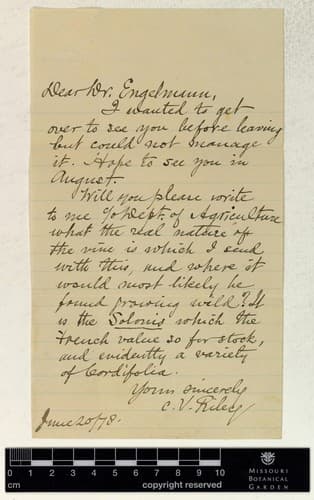 Dear Dr. Engelmann,
I wanted to get
over to see you before leaving
but could not manage
it. Hope to see you in
August.
Will you please write
to me c/o Dept. of Agriculture
what the real nature of
the vine is which I send
with this, and where it
would most likely be
found growing wild? It
is the Solonis which the
French value so for stock,
and evidently a variety
of Cordifolia.
Yours sincerely
C. V. Riley
June 20/78.
0 1 2 3 4 5 6 7 8 9 10
cm copyright reserved
MISSOURI
BOTANICAL
GARDEN